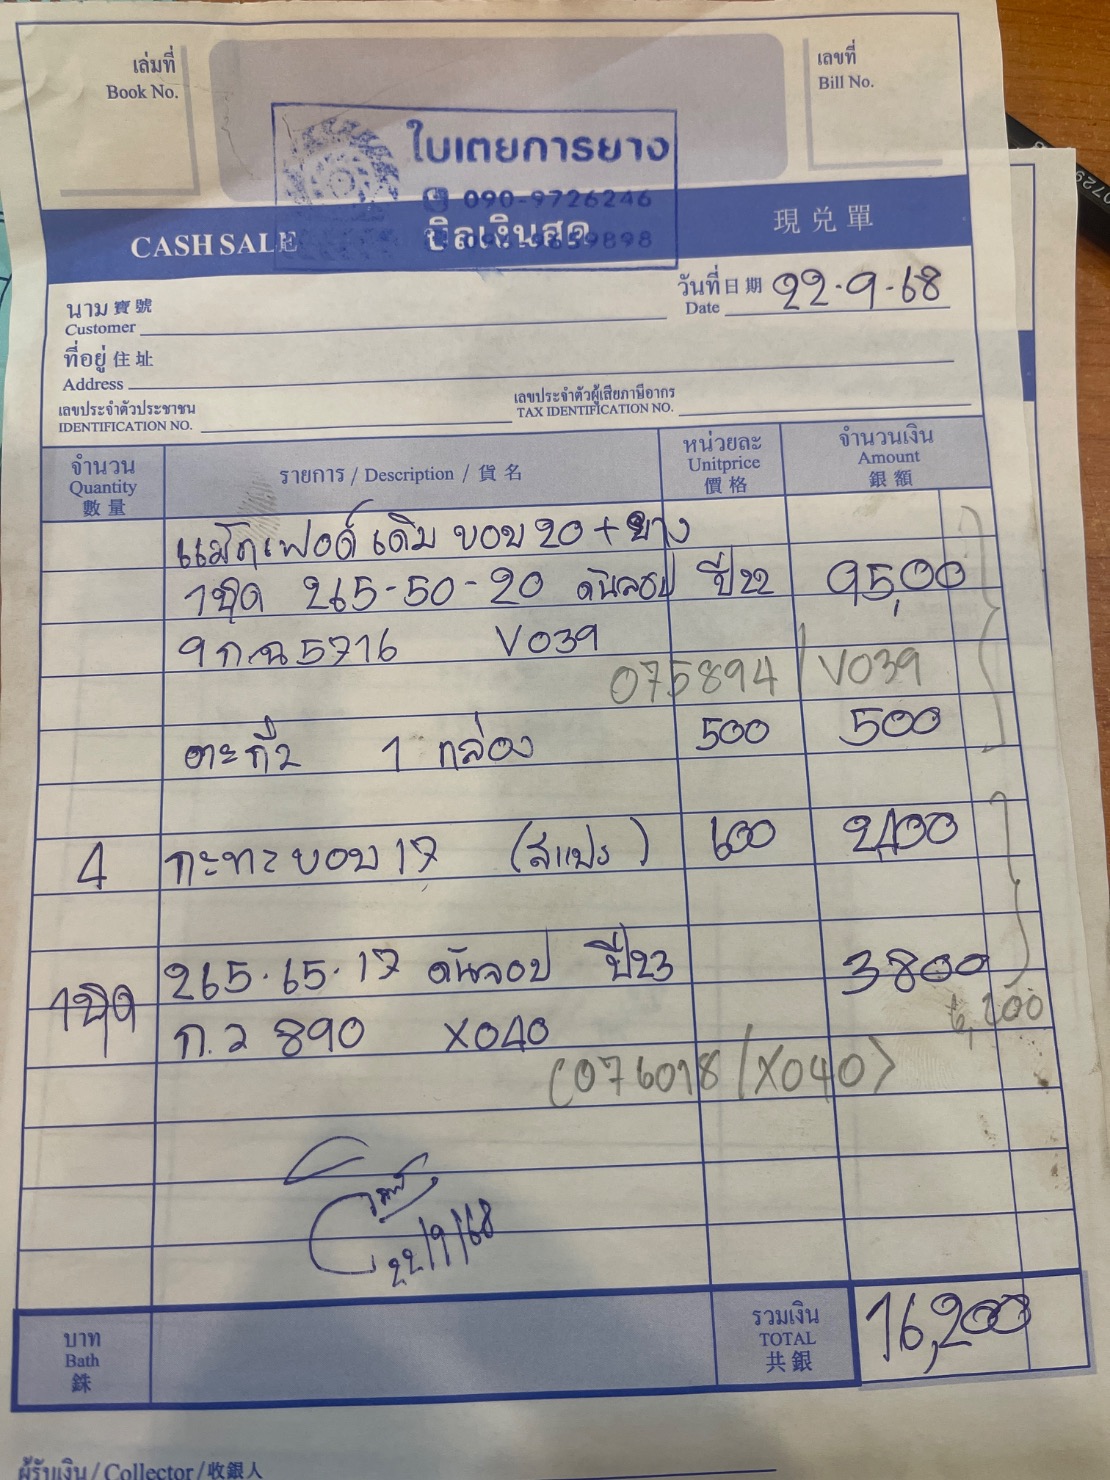 เล่มที่
Book No.
เลขที่
Bill No.
ใบเตยการยาง
090-9726246
9898
CASH SALE บิลเงินสด 現兑單
วันที่日期 22.9.68
Date
นาม寶號
Customer
ที่อยู่住址
Address
เลขประจำตัวประชาชน
IDENTIFICATION NO.
เลขประจำตัวผู้เสียภาษีอากร
TAX IDENTIFICATION NO.
จำนวน
Quantity
數量
รายการ / Description / 貨名
หน่วยละ
Unitprice
價格
จำนวนเงิน
Amount
銀額
แม็กฟอร์ด เดิม ขอบ 20 + ยาง
1ชุด 265-50-20 ดันลอป ปี22 9,500
9กฉ 5716 V039
075894 / V039
ตะกั่ว 1 กล่อง 500 500
4 กะทะขอบ 17 (สแปร์) 600 2,400
1ชุด 265.65.17 ดันลอป ปี23 3800
6,200
ก.ว 890 X040
(076018 / X040)
22/9/68
บาท
Bath
銖
รวมเงิน
TOTAL
共銀
16,200
ผู้รับเงิน / Collector / 收銀人